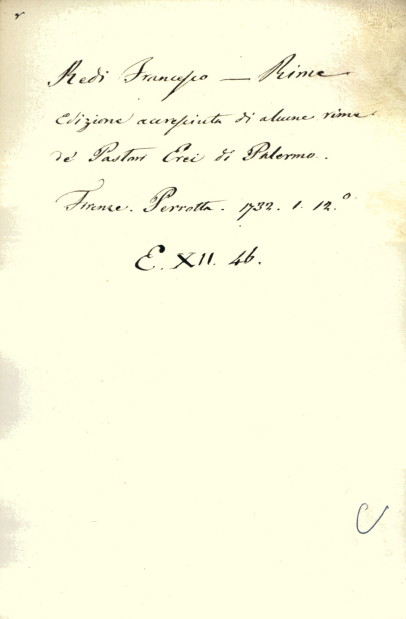 Redi Francesco — Rime
Edizione accresciuta di alcune rime
de' Pastori Erei di Palermo.
Firenze. Perrotta. 1732. 1. 12.°
E. XII. 46.
C